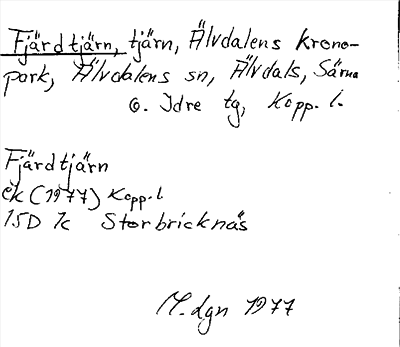 Fjärdtjärn, tjärn, Älvdalens krono-
park, Älvdalens sn, Älvdals, Särna
o. Idre tg, Kopp. l.
Fjärdtjärn
ek (1977) Kopp. l.
15D 7c Storbricknäs
M.dgn 1977